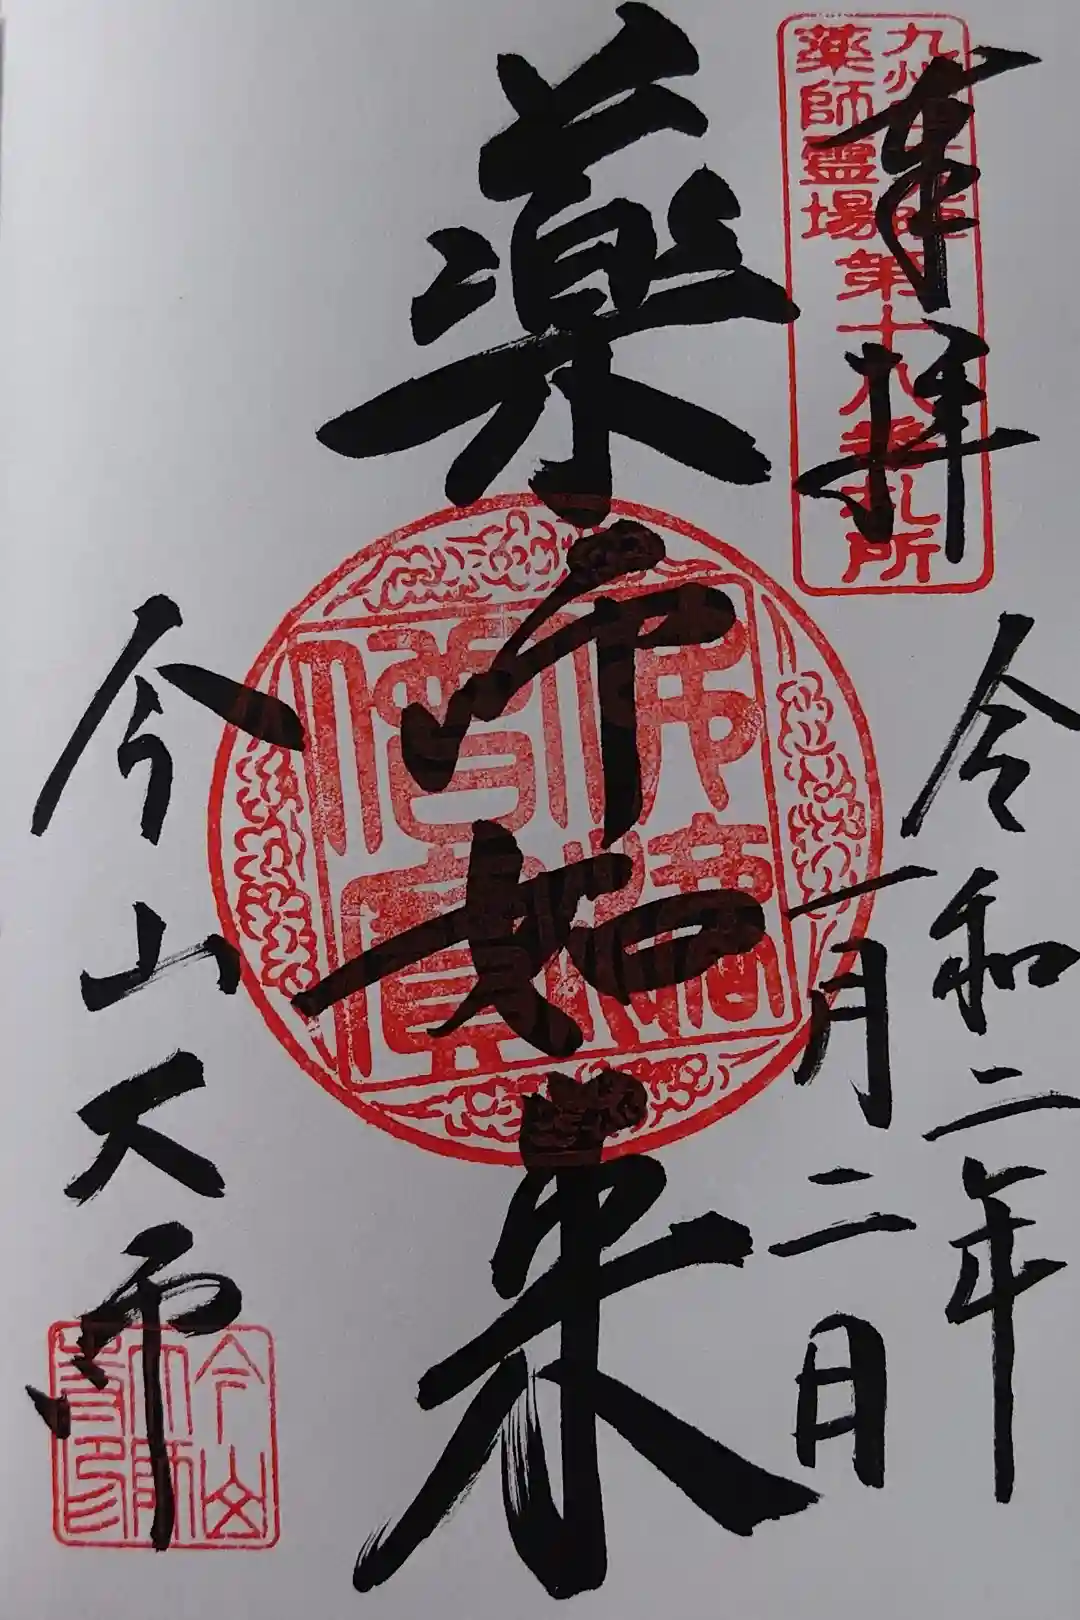 奉拝
九州
薬師霊場
第十八番札所
令和二年
一月二日
薬師如来
佛法
僧寶
今山大師
今山
大師
寺印